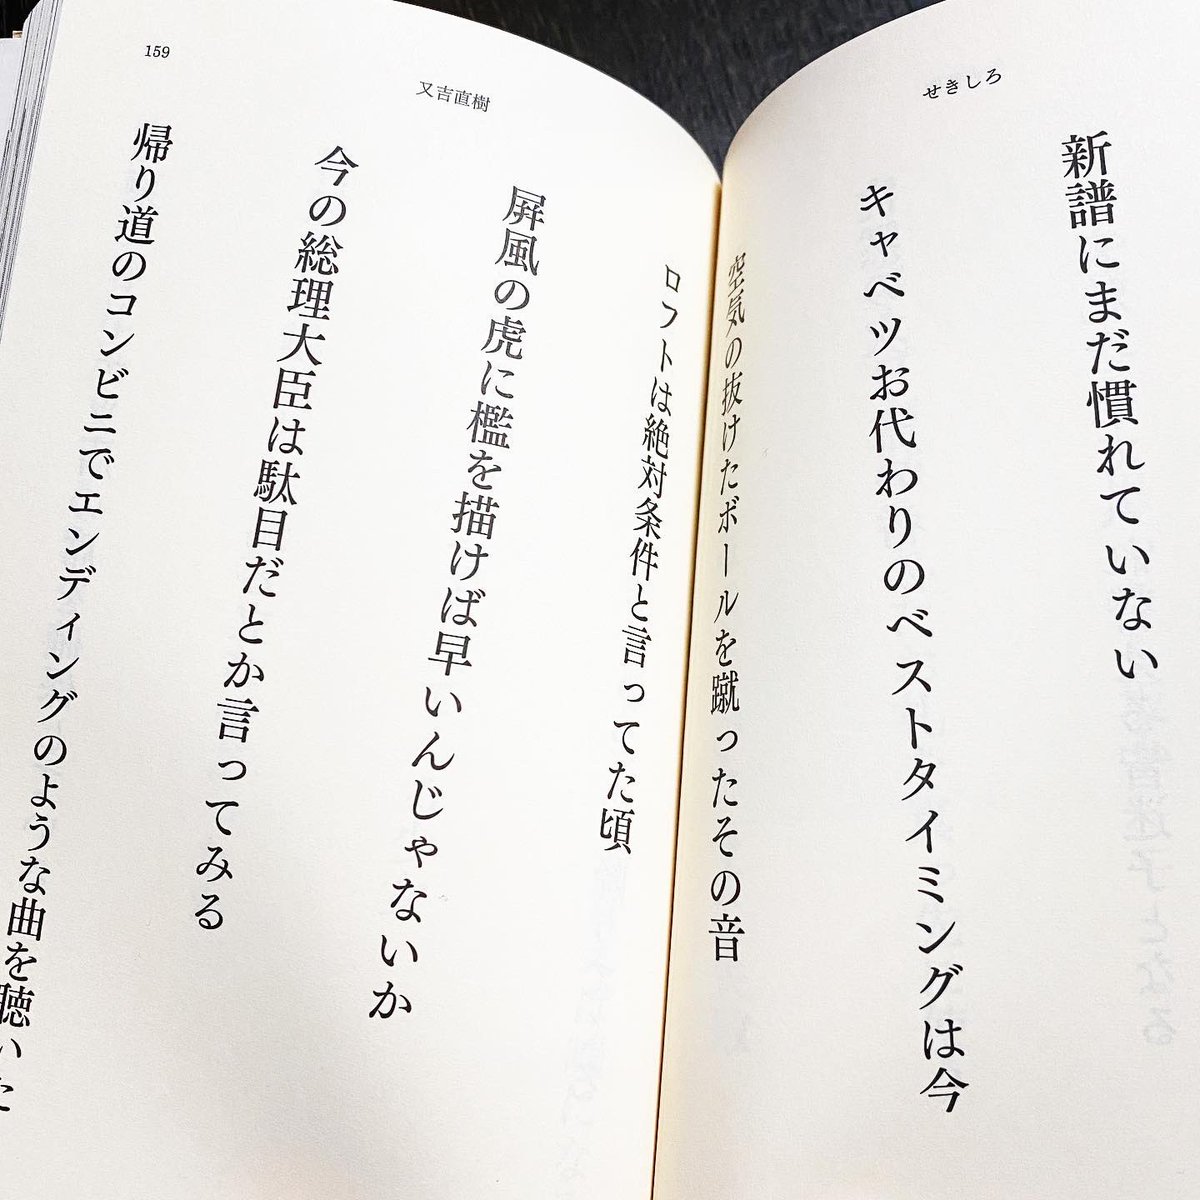 せきしろ
新譜にまだ慣れていない
キャベツお代わりのベストタイミングは今
空気の抜けたボールを蹴ったその音
159
又吉直樹
ロフトは絶対条件と言ってた頃
屏風の虎に檻を描けば早いんじゃないか
今の総理大臣は駄目だとか言ってみる
帰り道のコンビニでエンディングのような曲を聴いた